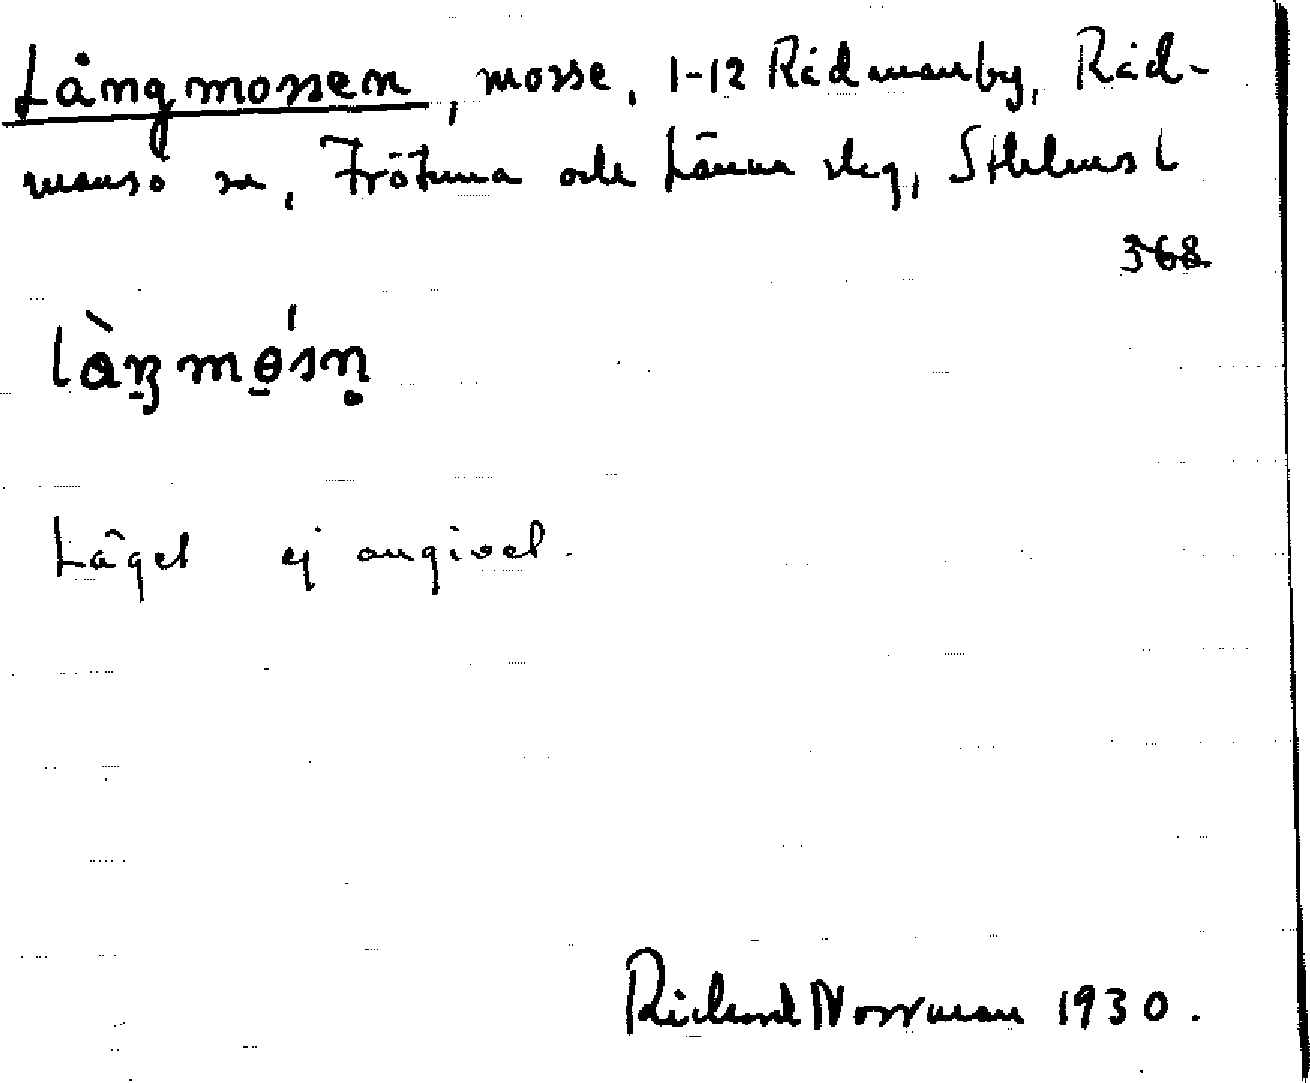 Långmossen, mosse, 1-12 Rådmanby, Råd-
mansö sn, Frötuna och Länna skg, Sthlms l
368
làŋmó̱sn̥
Läget ej angivet.
Richard Norrman 1930.